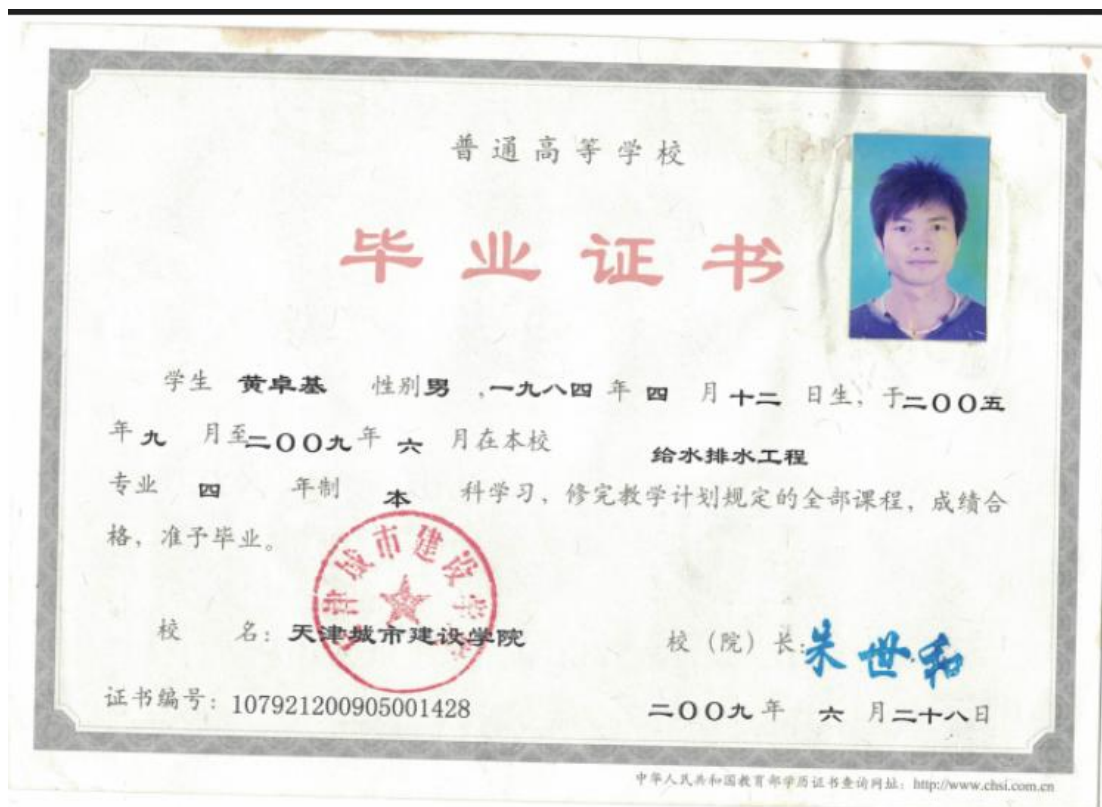 普通高等学校
毕业证书
学生 黄卓基 性别男，一九八四 年 四 月 十二 日生，于二〇〇五
年 九 月至二〇〇九 年 六 月在本校 给水排水工程
专业 四 年制 本 科学习，修完教学计划规定的全部课程，成绩合
格，准予毕业。
天津城市建设学院
校 名：天津城市建设学院 校（院）长：朱世和
证书编号：107921200905001428 二〇〇九 年 六 月二十八日
中华人民共和国教育部学历证书查询网址：http://www.chsi.com.cn